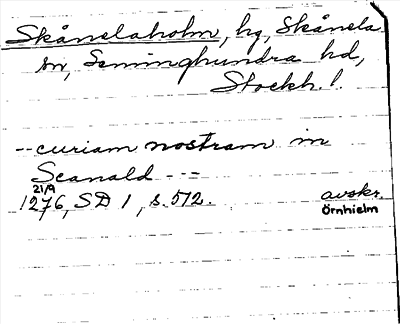 Skånelaholm, hg, Skånela
sn, Seminghundra hd,
Stockh. l.
--curiam nostram in
Scanald ---
21/9
1276, SD 1, s. 572. avskr.
Örnhielm